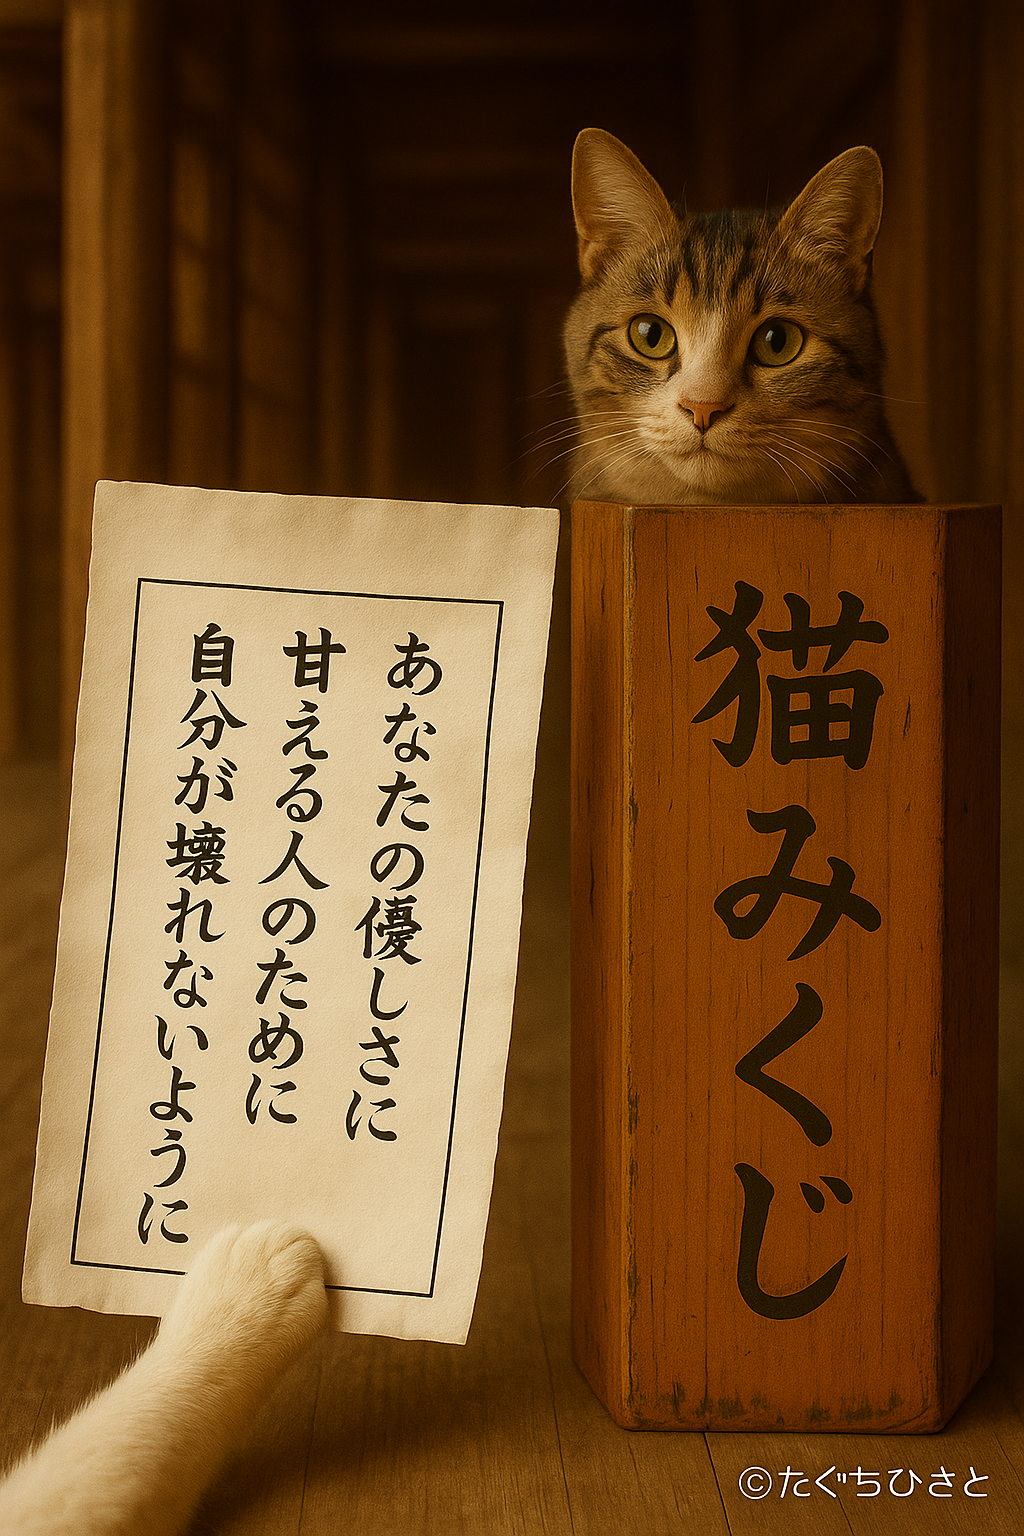 あなたの優しさに
甘える人のために
自分が壊れないように
猫みくじ
©たぐちひさと